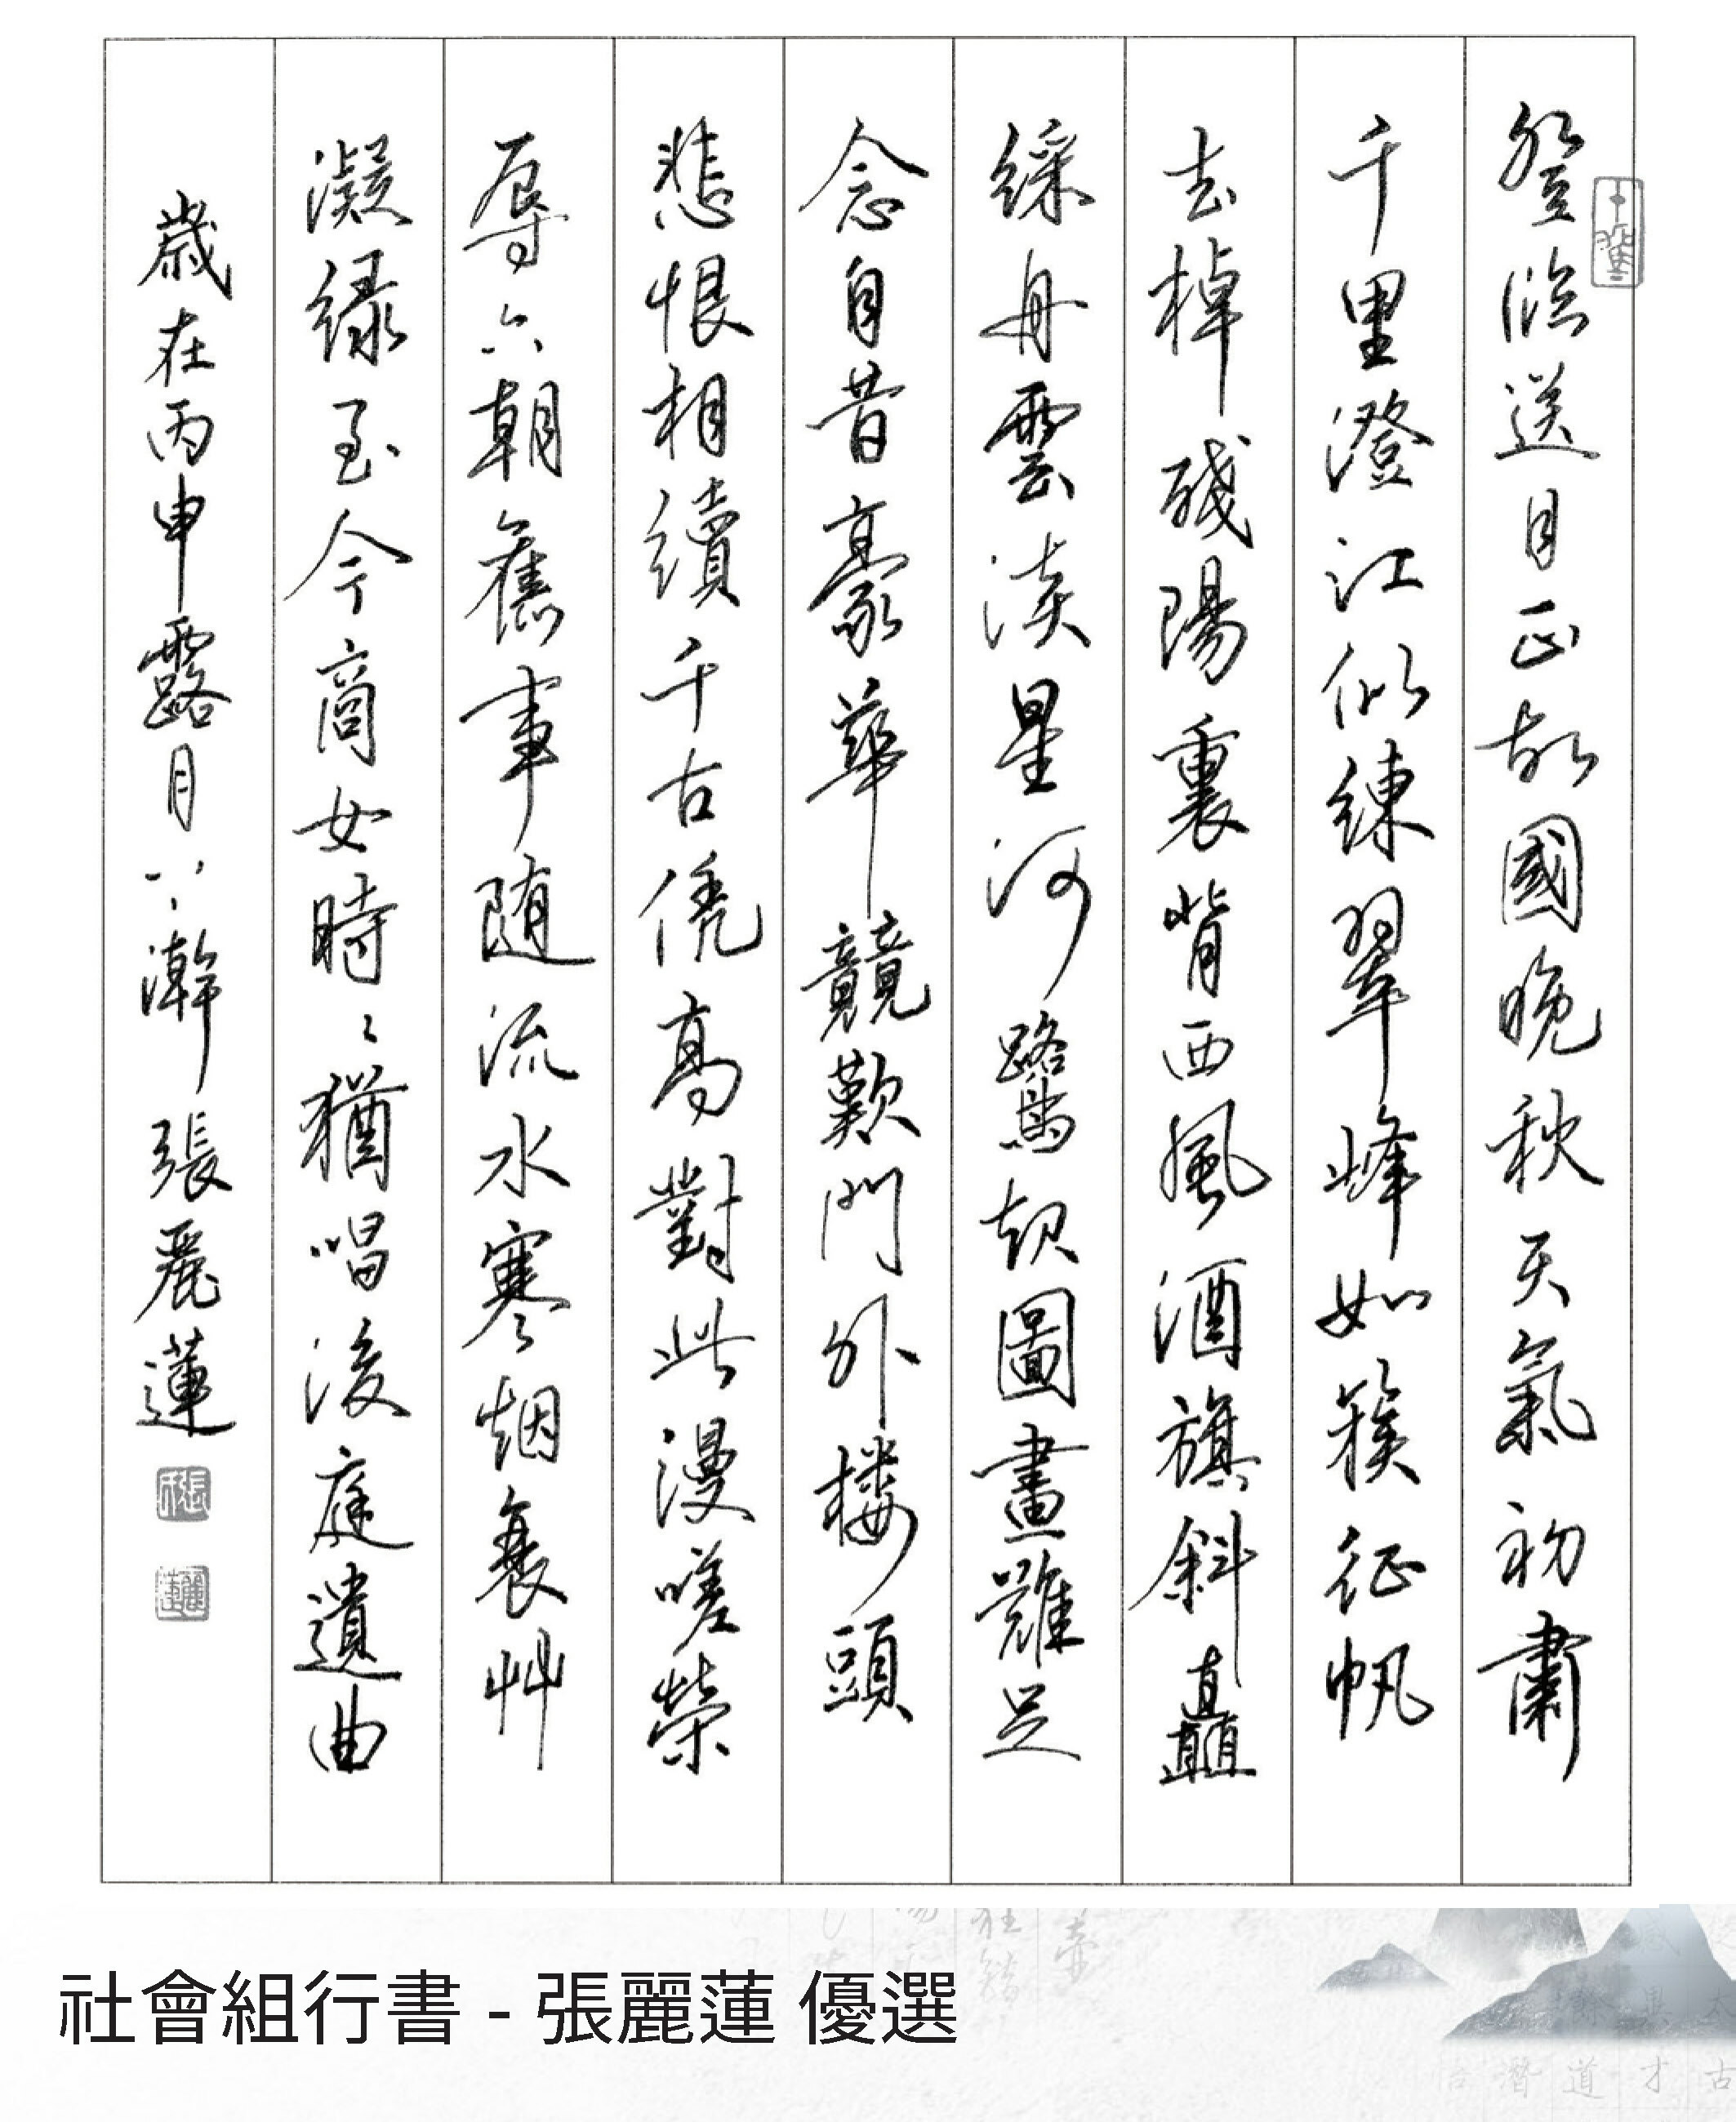 登臨送目正故國晚秋天氣初肅
千里澄江似練翠峰如簇征帆
去棹殘陽裏背西風酒旗斜矗
綵舟雲淡星河鷺起圖畫難足
念自昔豪華競歎門外樓頭
悲恨相續千古凭高對此漫嗟榮
辱六朝舊事随流水寒烟衰艸
凝綠至今商女時〻猶唱後庭遺曲
歲在丙申露月下澣張麗蓮
社會組行書 - 張麗蓮 優選